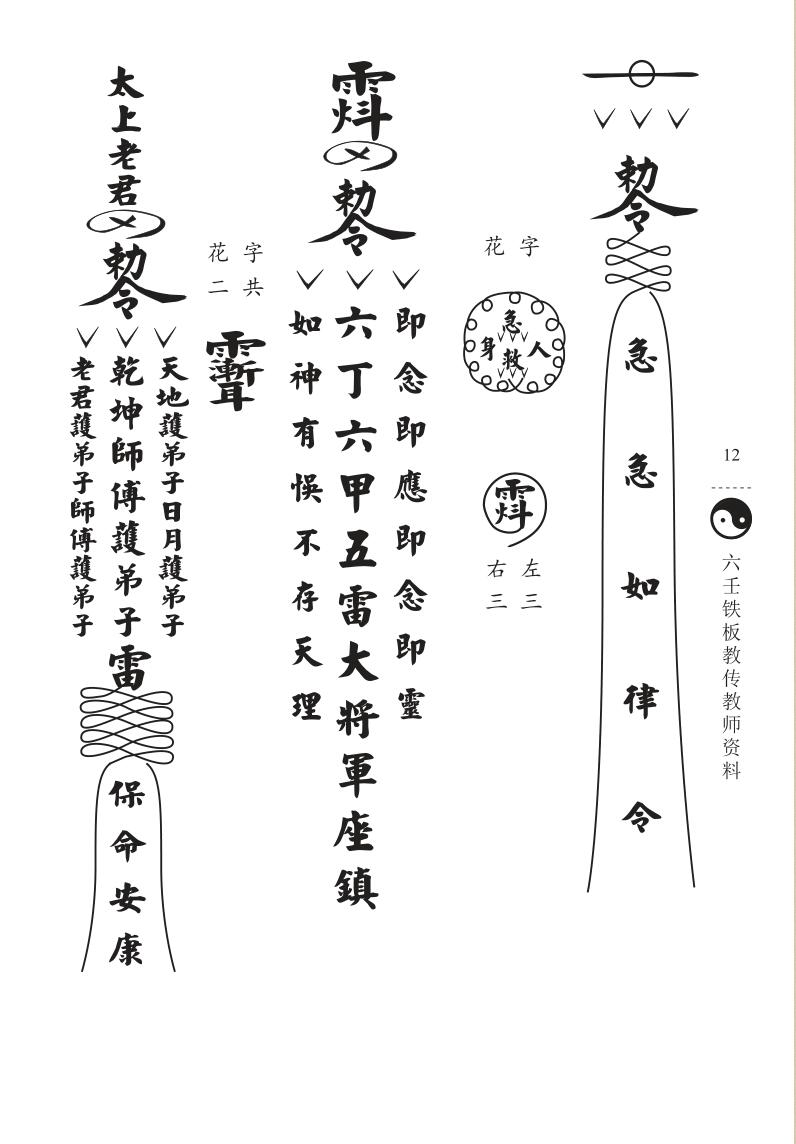 12
六壬铁板教传教师资料
勅令
急急如律令
字花
急
人救身
左三
右三
勅令
即念即應即念即靈
六丁六甲五雷大將軍座鎮
如神有悮不存天理
字共
花二
太上老君
勅令
天地護弟子日月護弟子
乾坤師傅護弟子
老君護弟子師傅護弟子
雷
保命安康